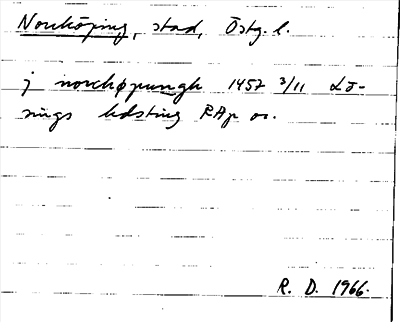 Norrköping, stad, Östg. l.
j norchøpungh 1457 3/11 Lö-
sings hdsting RAp or.
R. D. 1966.